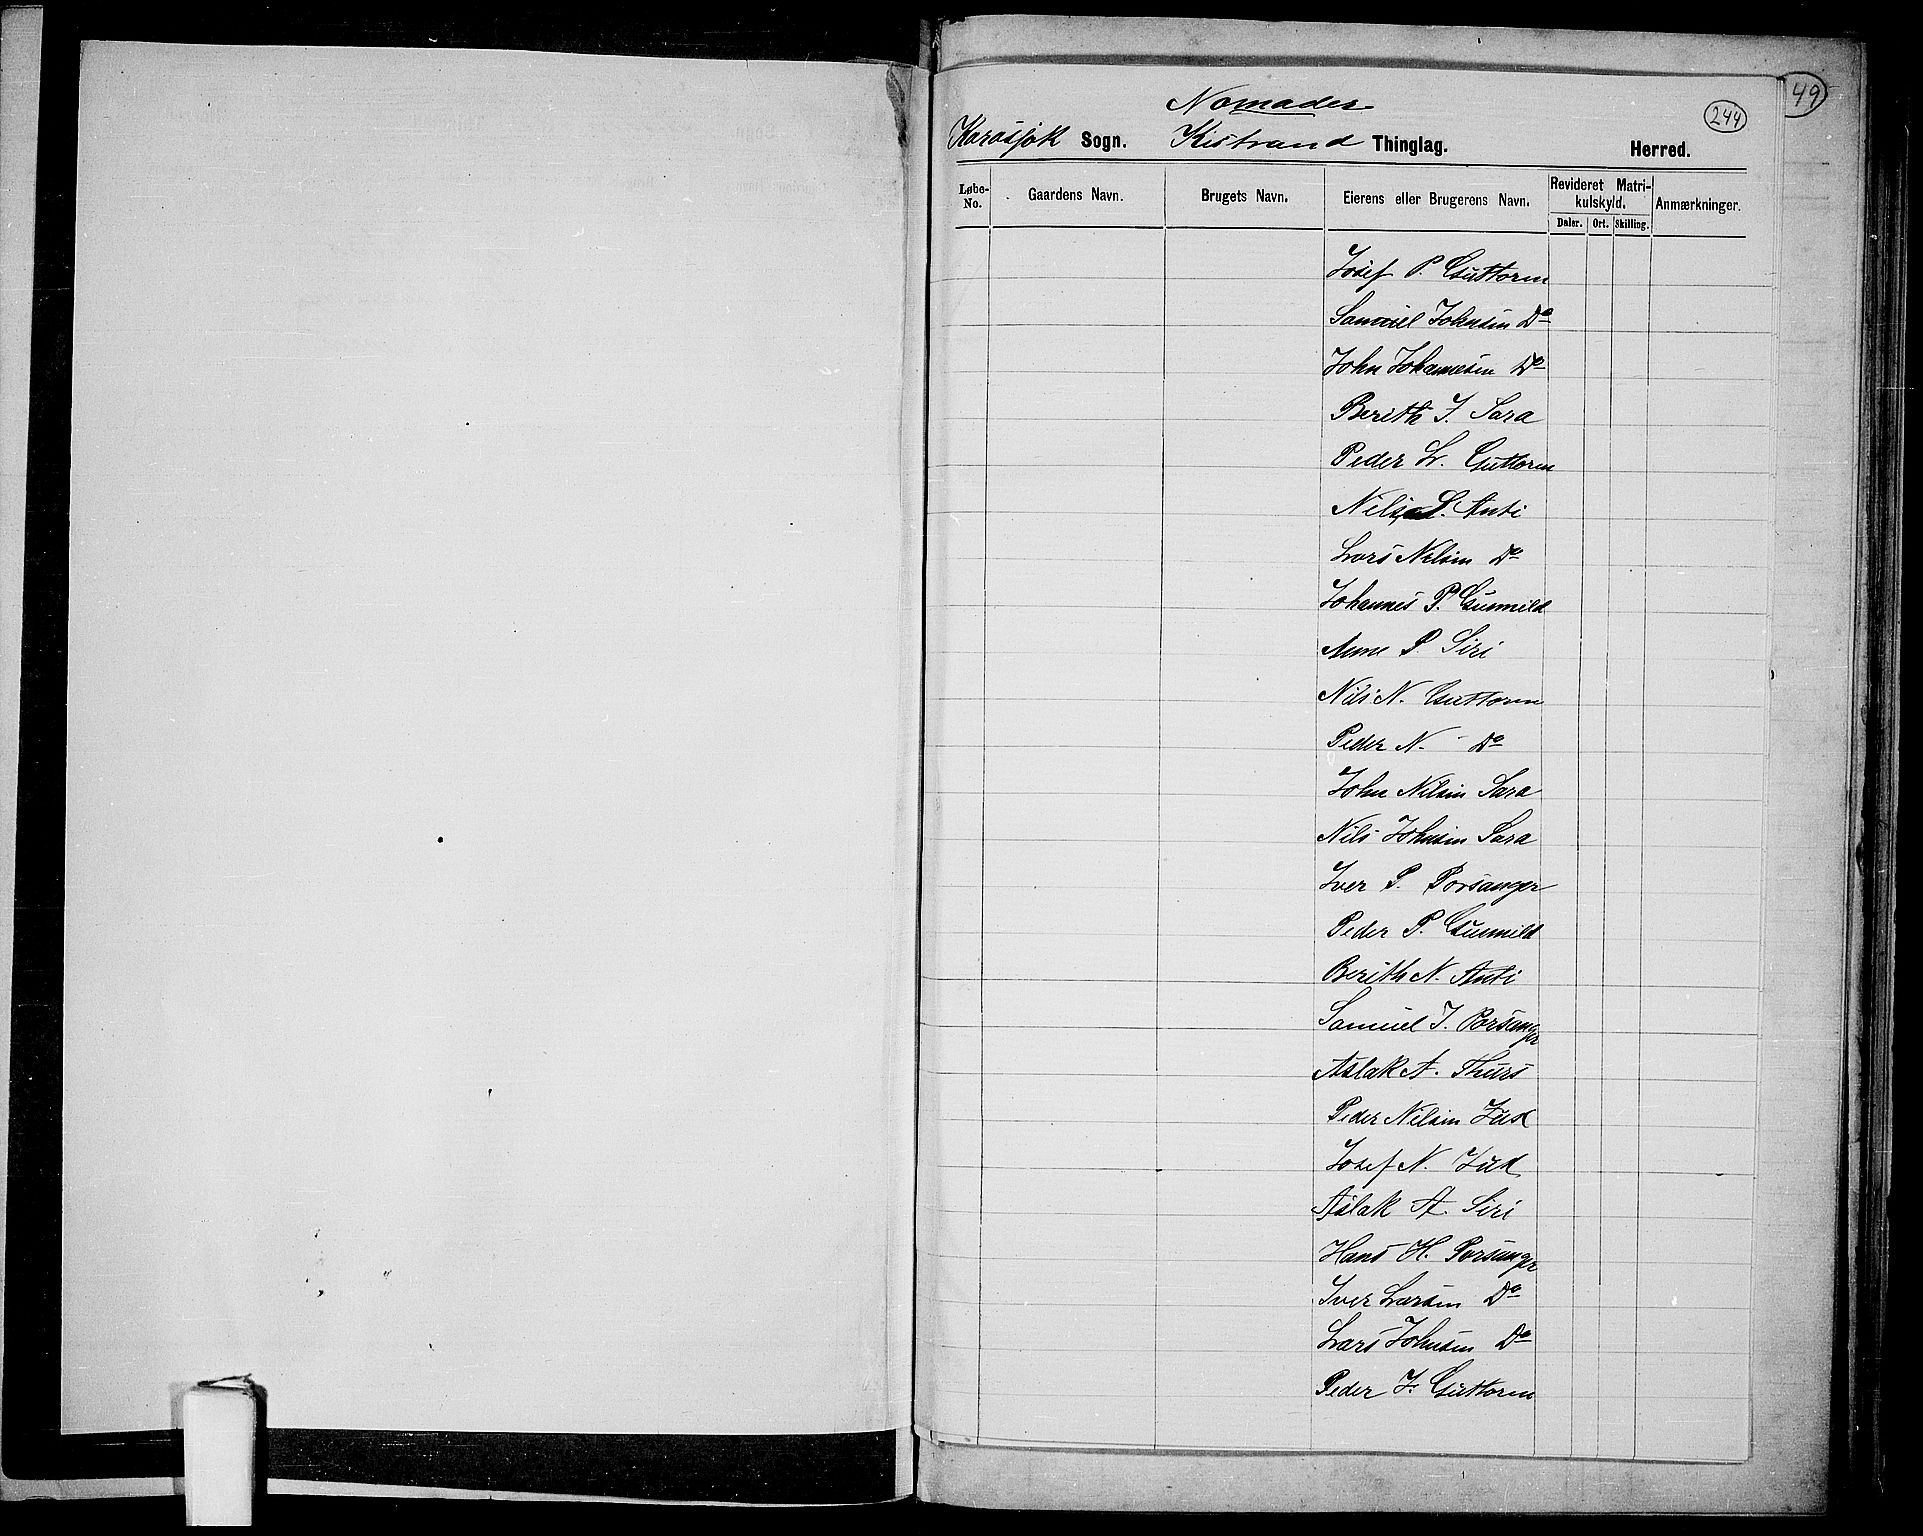 49
244
Nomader
Karasjok Sogn. Kistrand Thinglag. Herred.
Løbe-No. Gaardens Navn. Brugets Navn. Eierens eller Brugerens Navn. Revideret Matrikulskyld. Anmærkninger.
Daler. Ort. Skilling.
Josef P. Guttorm
Samuel Johnsen Do
John Johannesen Do
Berith J. Sara
Peder L. Guttorm
Nils S. Anti
Lars Nilsen Do
Johannes P. Gunnild
Anne P. Siri
Nils N. Guttorm
Peder N. Do
John Nilsen Sara
Nils Johnsen Sara
Iver P. Porsanger
Peder P. Gunnild
Berith N. Anti
Samuel J. Porsanger
Aslak A. Thuri
Peder Nilsen Jud
Josef N. Jud
Aslak A. Siri
Hans H. Porsanger
Iver Larsen Do
Lars Johnsen Do
Peder J. Guttorm